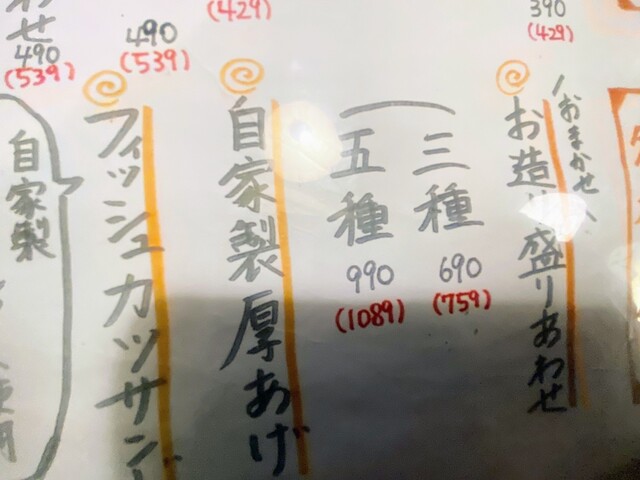 390
(429)
おまかせ
お造り盛りあわせ
三種
690
(759)
五種
990
(1089)
(429)
自家製厚あげ
490
(539)
フィッシュカツサンド
わせ
490
(539)
自家製